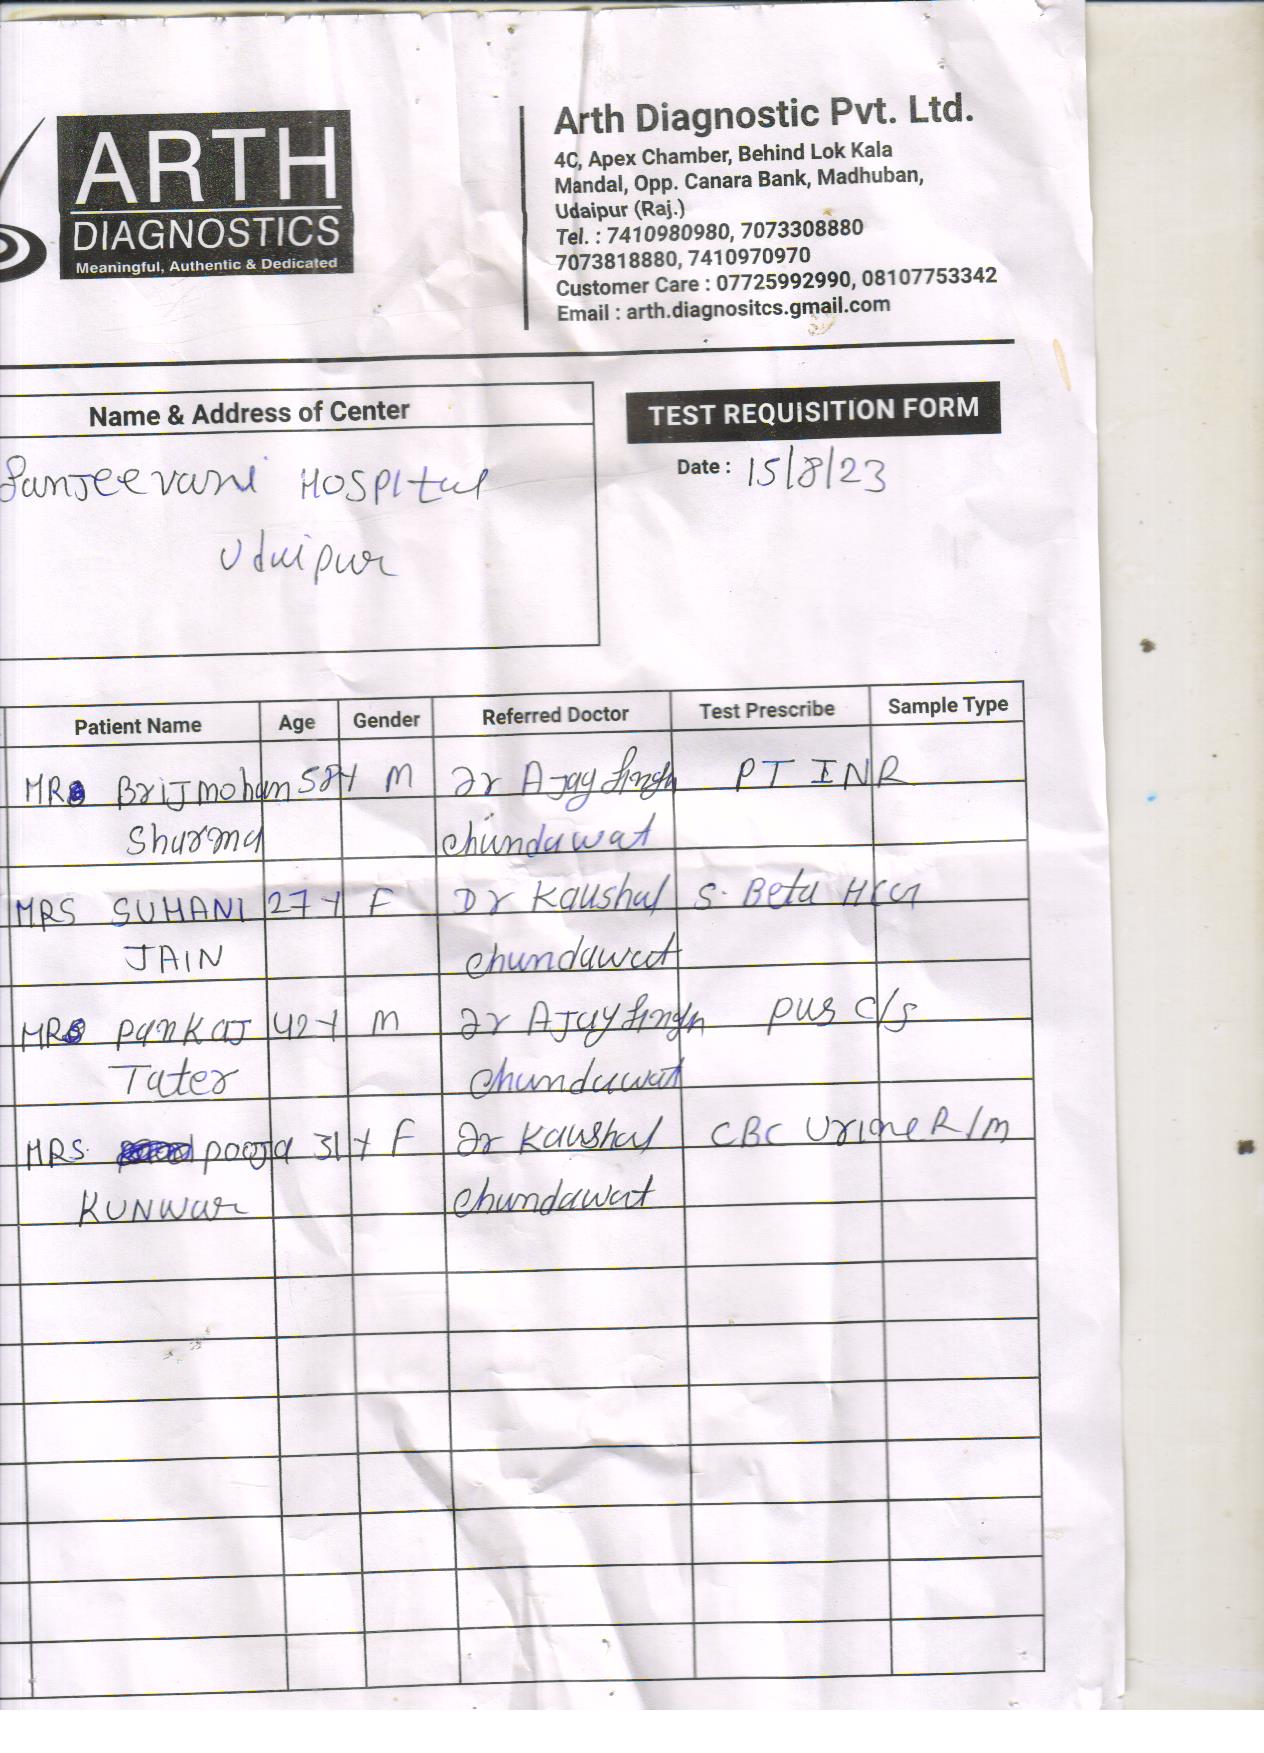 ARTH
DIAGNOSTICS
Meaningful, Authentic & Dedicated
Arth Diagnostic Pvt. Ltd.
4C, Apex Chamber, Behind Lok Kala
Mandal, Opp. Canara Bank, Madhuban,
Udaipur (Raj.)
Tel. : 7410980980, 7073308880
7073818880, 7410970970
Customer Care : 07725992990, 08107753342
Email : arth.diagnositcs.gmail.com
Name & Address of Center
Sanjeevani Hospital
Udaipur
TEST REQUISITION FORM
Date : 15/8/23
Patient Name Age Gender Referred Doctor Test Prescribe Sample Type
MR Brijmohan 58Y M Dr Ajay Singh PT INR
Sharma Chundawat
MRS SUHANI 27Y F Dr Kaushal S. Beta HCG
JAIN Chundawat
MR Pankaj 42Y M Dr Ajay Singh pus c/s
Tater Chundawat
MRS. pooja 31Y F Dr Kaushal CBC Urine R/m
KUNWAR Chundawat